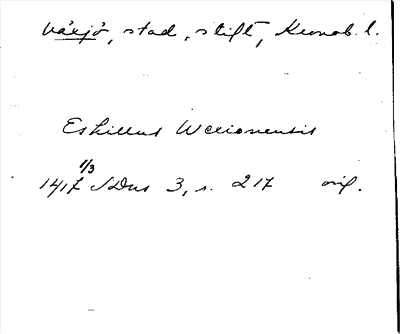 Växjö, stad, stift, Kronob. l.
Eskillus Wexionensis
1417 1/3 SDns 3, s. 217 orig.